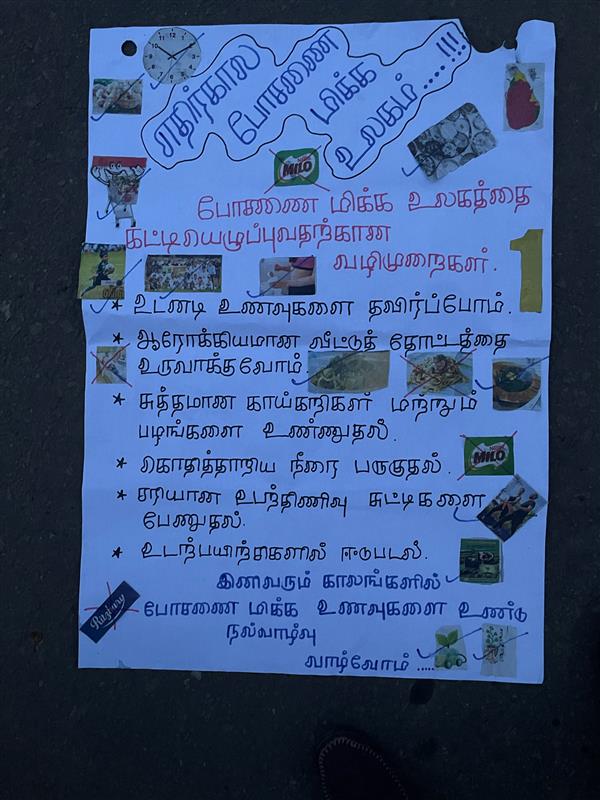 எதிர்கால
போசணை
மிக்க
உலகம்....!!!
MILO
போசணை மிக்க உலகத்தை
கட்டியெழுப்புவதற்கான
வழிமுறைகள்.
1
* உடனடி உணவுகளை தவிர்ப்போம்.
* ஆரோக்கியமான வீட்டுத் தோட்டத்தை
உருவாக்குவோம்.
* சுத்தமான காய்கறிகள் மற்றும்
பழங்களை உண்ணுதல்.
* கொதித்தாறிய நீரை பருகுதல்.
MILO
* சரியான உடற்திணிவு சுட்டிகளை
பேணுதல்.
* உடற்பயிற்சிகளில் ஈடுபடல்.
இனிவரும் காலங்களில்
போசணை மிக்க உணவுகளை உண்டு
நல்வாழ்வு
வாழ்வோம் .....